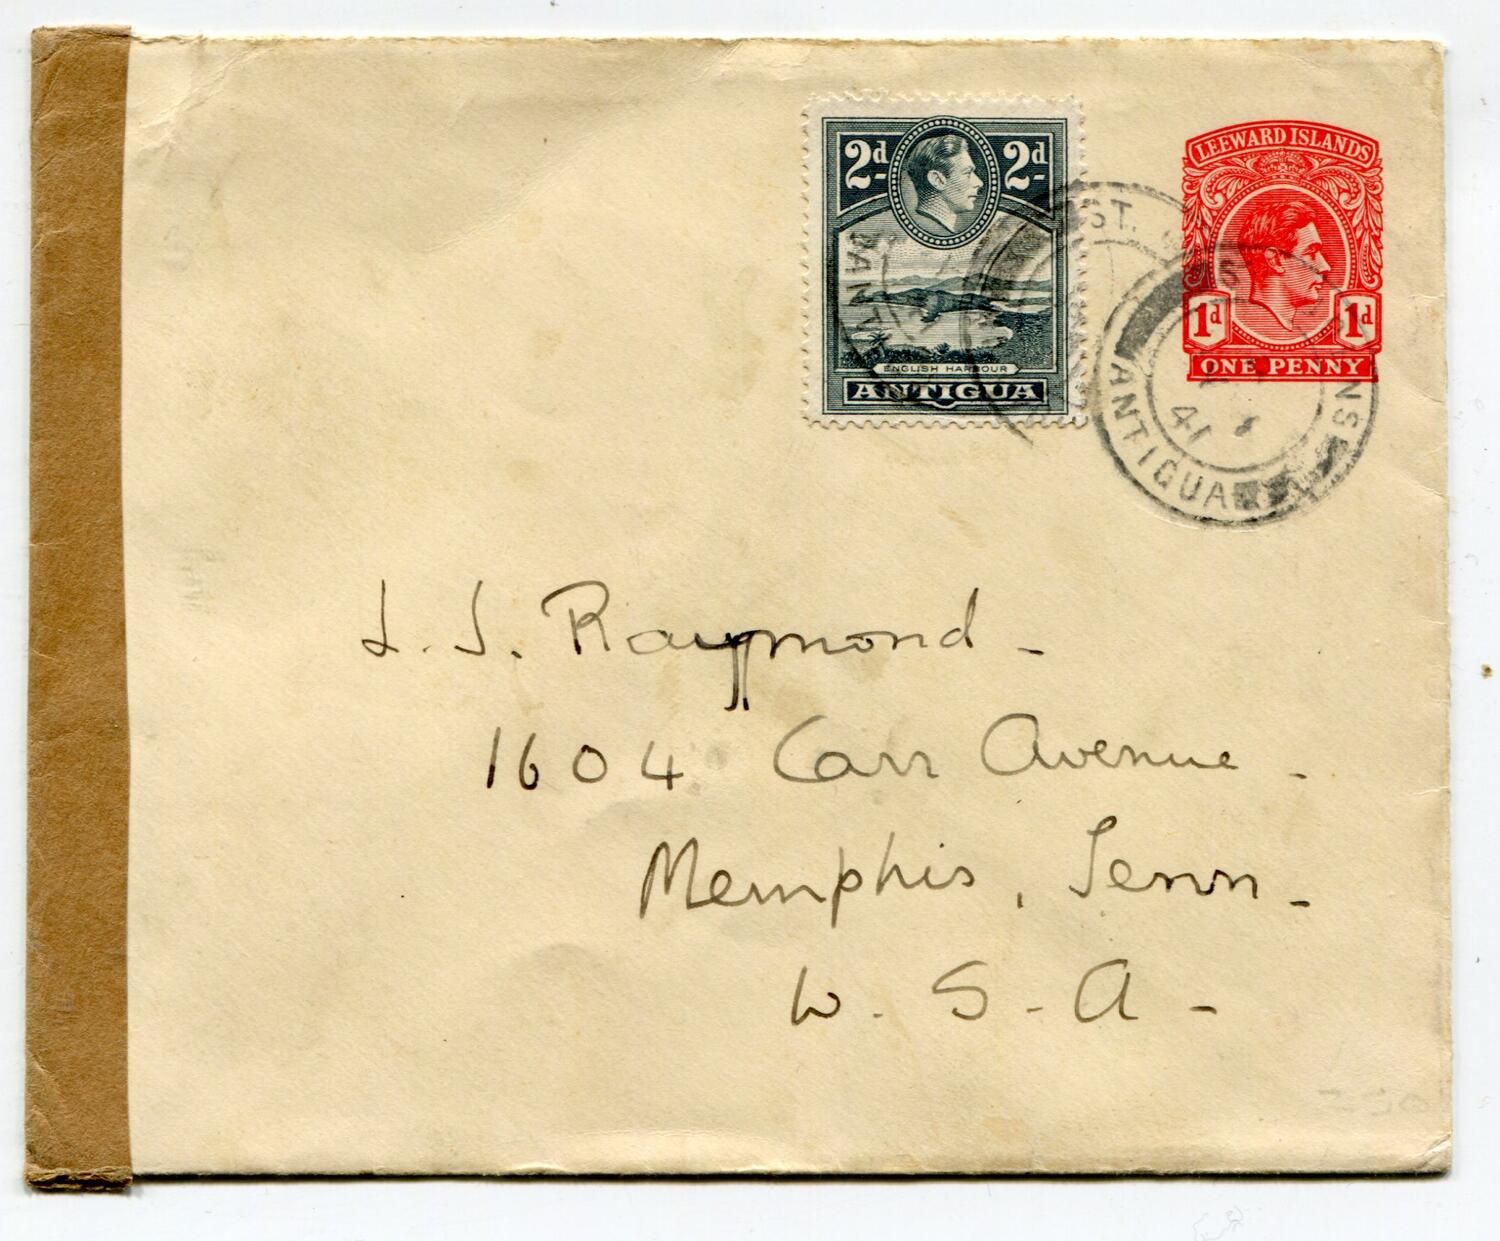 LEEWARD ISLANDS
1d 1d
ONE PENNY
2d 2d
ENGLISH HARBOUR
ANTIGUA
ST.
ANTIGUA
41
L. J. Raymond -
1604 Carr Avenue -
Memphis, Tenn -
U. S - A -